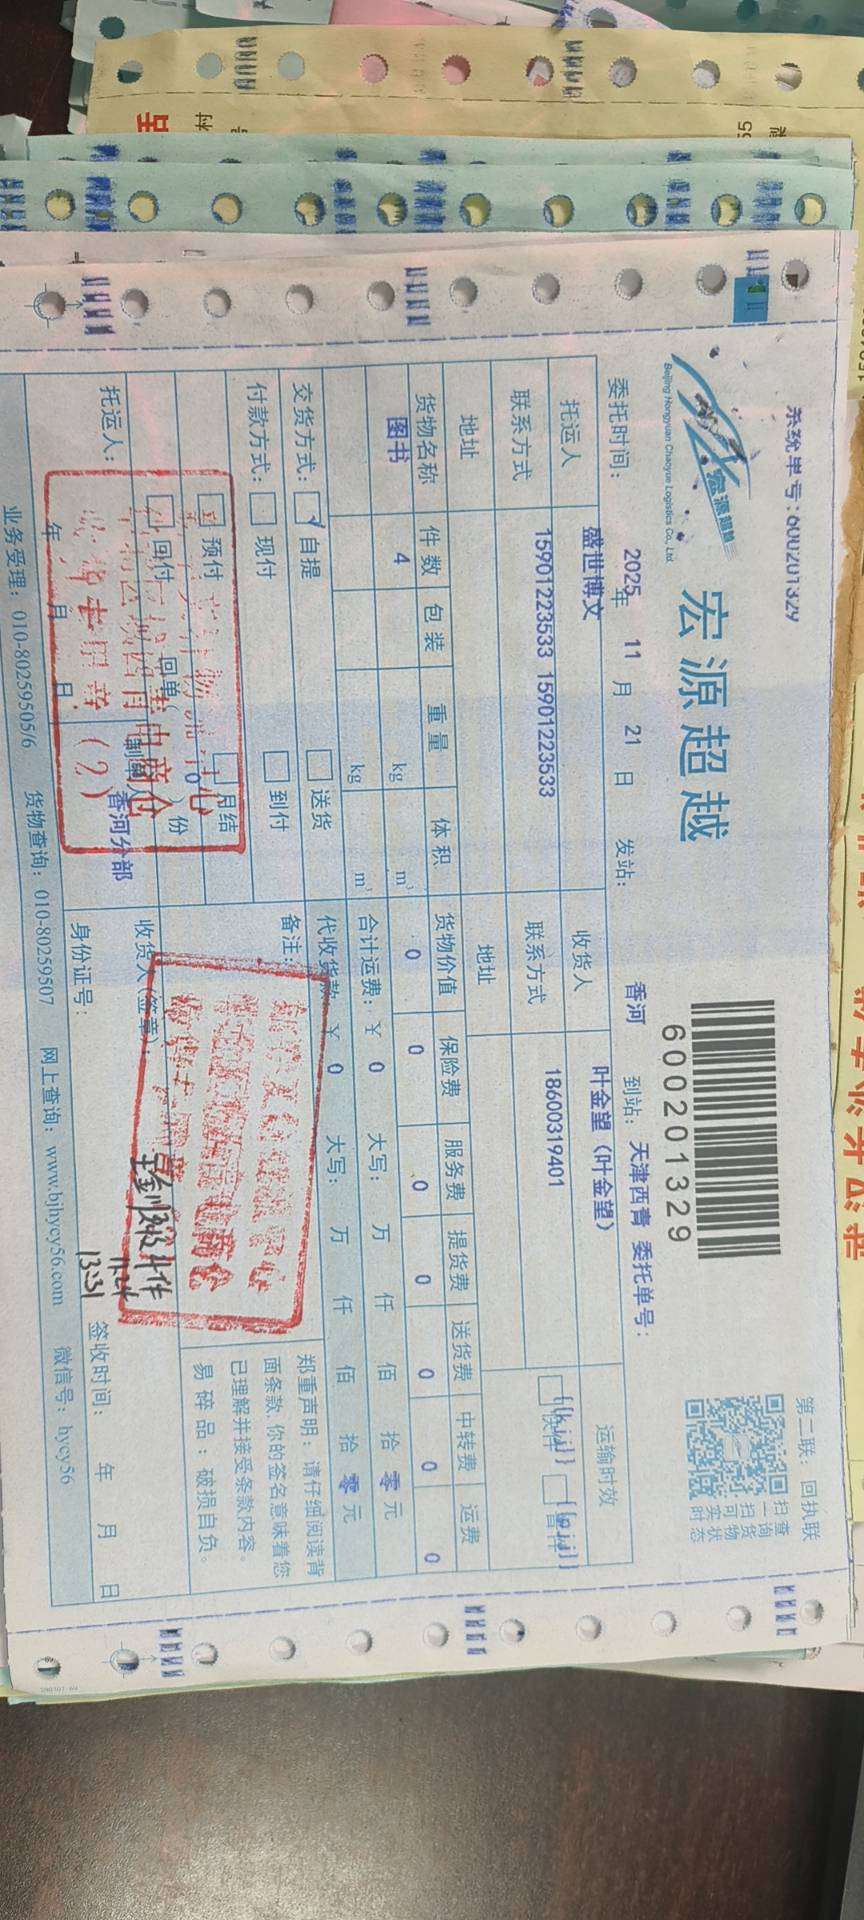 系统单号:600201329
第二联：回执联
宏源超越
Beijing Hongyuan Chaoyue Logistics Co., Ltd.
宏源超越
600201329
扫一扫可实时
查询货物状态
委托时间： 2025年 11 月 21 日 发站： 香河 到站： 天津西青 委托单号：
托运人 盛世博文 收货人 叶金望（叶金望） 运输时效
联系方式 15901223533 15901223533 联系方式 18600319401
地址 地址
货物名称 件数 包装 重量 体积 货物价值 保险费 服务费 提货费 送货费 中转费 运费
图书 4 kg m³ 0 0 0 0 0 0 0
kg m³ 合计运费：￥ 0 大写： 万 仟 佰 拾 零 元
交货方式： 自提 送货 代收货款：￥ 0 大写： 万 仟 佰 拾 零 元
付款方式： 现付 到付 备注：
预付 月结
回付 回单( 0 )份
郑重声明：请仔细阅读背
面条款,你的签名意味着您
已理解并接受条款内容。
易碎品：破损自负。
托运人： 年 月 日 制单人 香河分部
收货人(签章)：
收件
11.24
13:31
身份证号： 签收时间： 年 月 日
业务受理：010-80259505/6 货物查询：010-80259507 网上查询：www.bjhycy56.com 微信号：hycy56